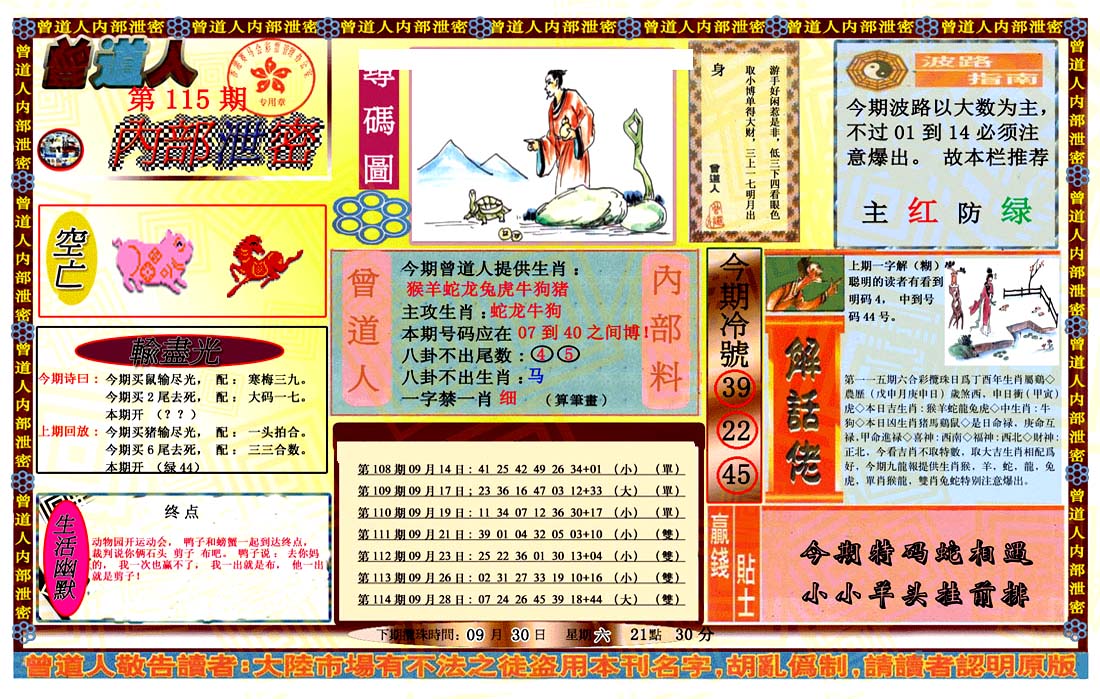 曾道人内部泄密 曾道人内部泄密 曾道人内部泄密 曾道人内部泄密 曾道人内部泄密 曾道人内部泄密 曾道人内部泄密
曾道人内部泄密
曾道人内部泄密
曾道人内部泄密
曾道人内部泄密
曾道人
第115期
专用章
内部泄密
尋碼圖
游手好闲惹是非，低三下四看眼色
取小博单得大财，三上一七明月出
身
曾道人
波路
指南
今期波路以大数为主，
不过 01 到 14 必须注
意爆出。 故本栏推荐
主 红 防 绿
空亡
輸盡光
今期诗曰：今期买鼠输尽光， 配： 寒梅三九。
今期买２尾去死， 配： 大码一七。
本期开 （？？）
上期回放：今期买猪输尽光， 配： 一头拍合。
今期买６尾去死， 配： 三三合数。
本期开 （绿 44）
曾道人
今期曾道人提供生肖：
猴羊蛇龙兔虎牛狗猪
主攻生肖：蛇龙牛狗
本期号码应在 07 到 40 之间博！
八卦不出尾数：④⑤
八卦不出生肖：马
一字禁一肖 细 （算筆畫）
內部料
今期冷號
39
22
45
上期一字解（糊）
聪明的读者有看到
明码 4， 中到号
码 44 号。
解話佬
第一一五期六合彩攪珠日爲丁酉年生肖屬鷄◇
農歷（戊申月庚申日）歲煞西，申日衝（甲寅）
虎◇本日吉生肖：猴羊蛇龍兔虎◇中生肖：牛
狗◇本日凶生肖猪馬鷄鼠◇是日命禄，庚命互
禄,甲命進禄◇喜神：西南◇福神：西北◇財神：
正北，今看吉肖不取特數，取大吉生肖相配爲
好，今期九龍報提供生肖猴，羊，蛇，龍，兔
虎，單肖猴龍，雙肖兔蛇特别注意爆出。
生活幽默
终点
动物园开运动会， 鸭子和螃蟹一起到达终点，
裁判说你俩石头 剪子 布吧。 鸭子说： 去你妈
的， 我一次也赢不了， 我一出就是布， 他一出
就是剪子！
第 108 期 09 月 14 日：41 25 42 49 26 34+01 （小） （單）
第 109 期 09 月 17 日；23 36 16 47 03 12+33 （大） （單）
第 110 期 09 月 19 日：11 34 07 12 36 30+17 （小） （單）
第 111 期 09 月 21 日：39 01 04 32 05 03+10 （小） （雙）
第 112 期 09 月 23 日：25 22 36 01 30 13+04 （小） （雙）
第 113 期 09 月 26 日：02 31 27 33 19 10+16 （小） （雙）
第 114 期 09 月 28 日：07 24 26 45 39 18+44 （大） （雙）
贏錢
貼士
今期特码蛇相遇
小小羊头挂前排
下期攪珠時間：09 月 30 日 星期六 21點 30 分
曾道人敬告讀者：大陸市場有不法之徒盗用本刊名字，胡亂僞制，請讀者認明原版